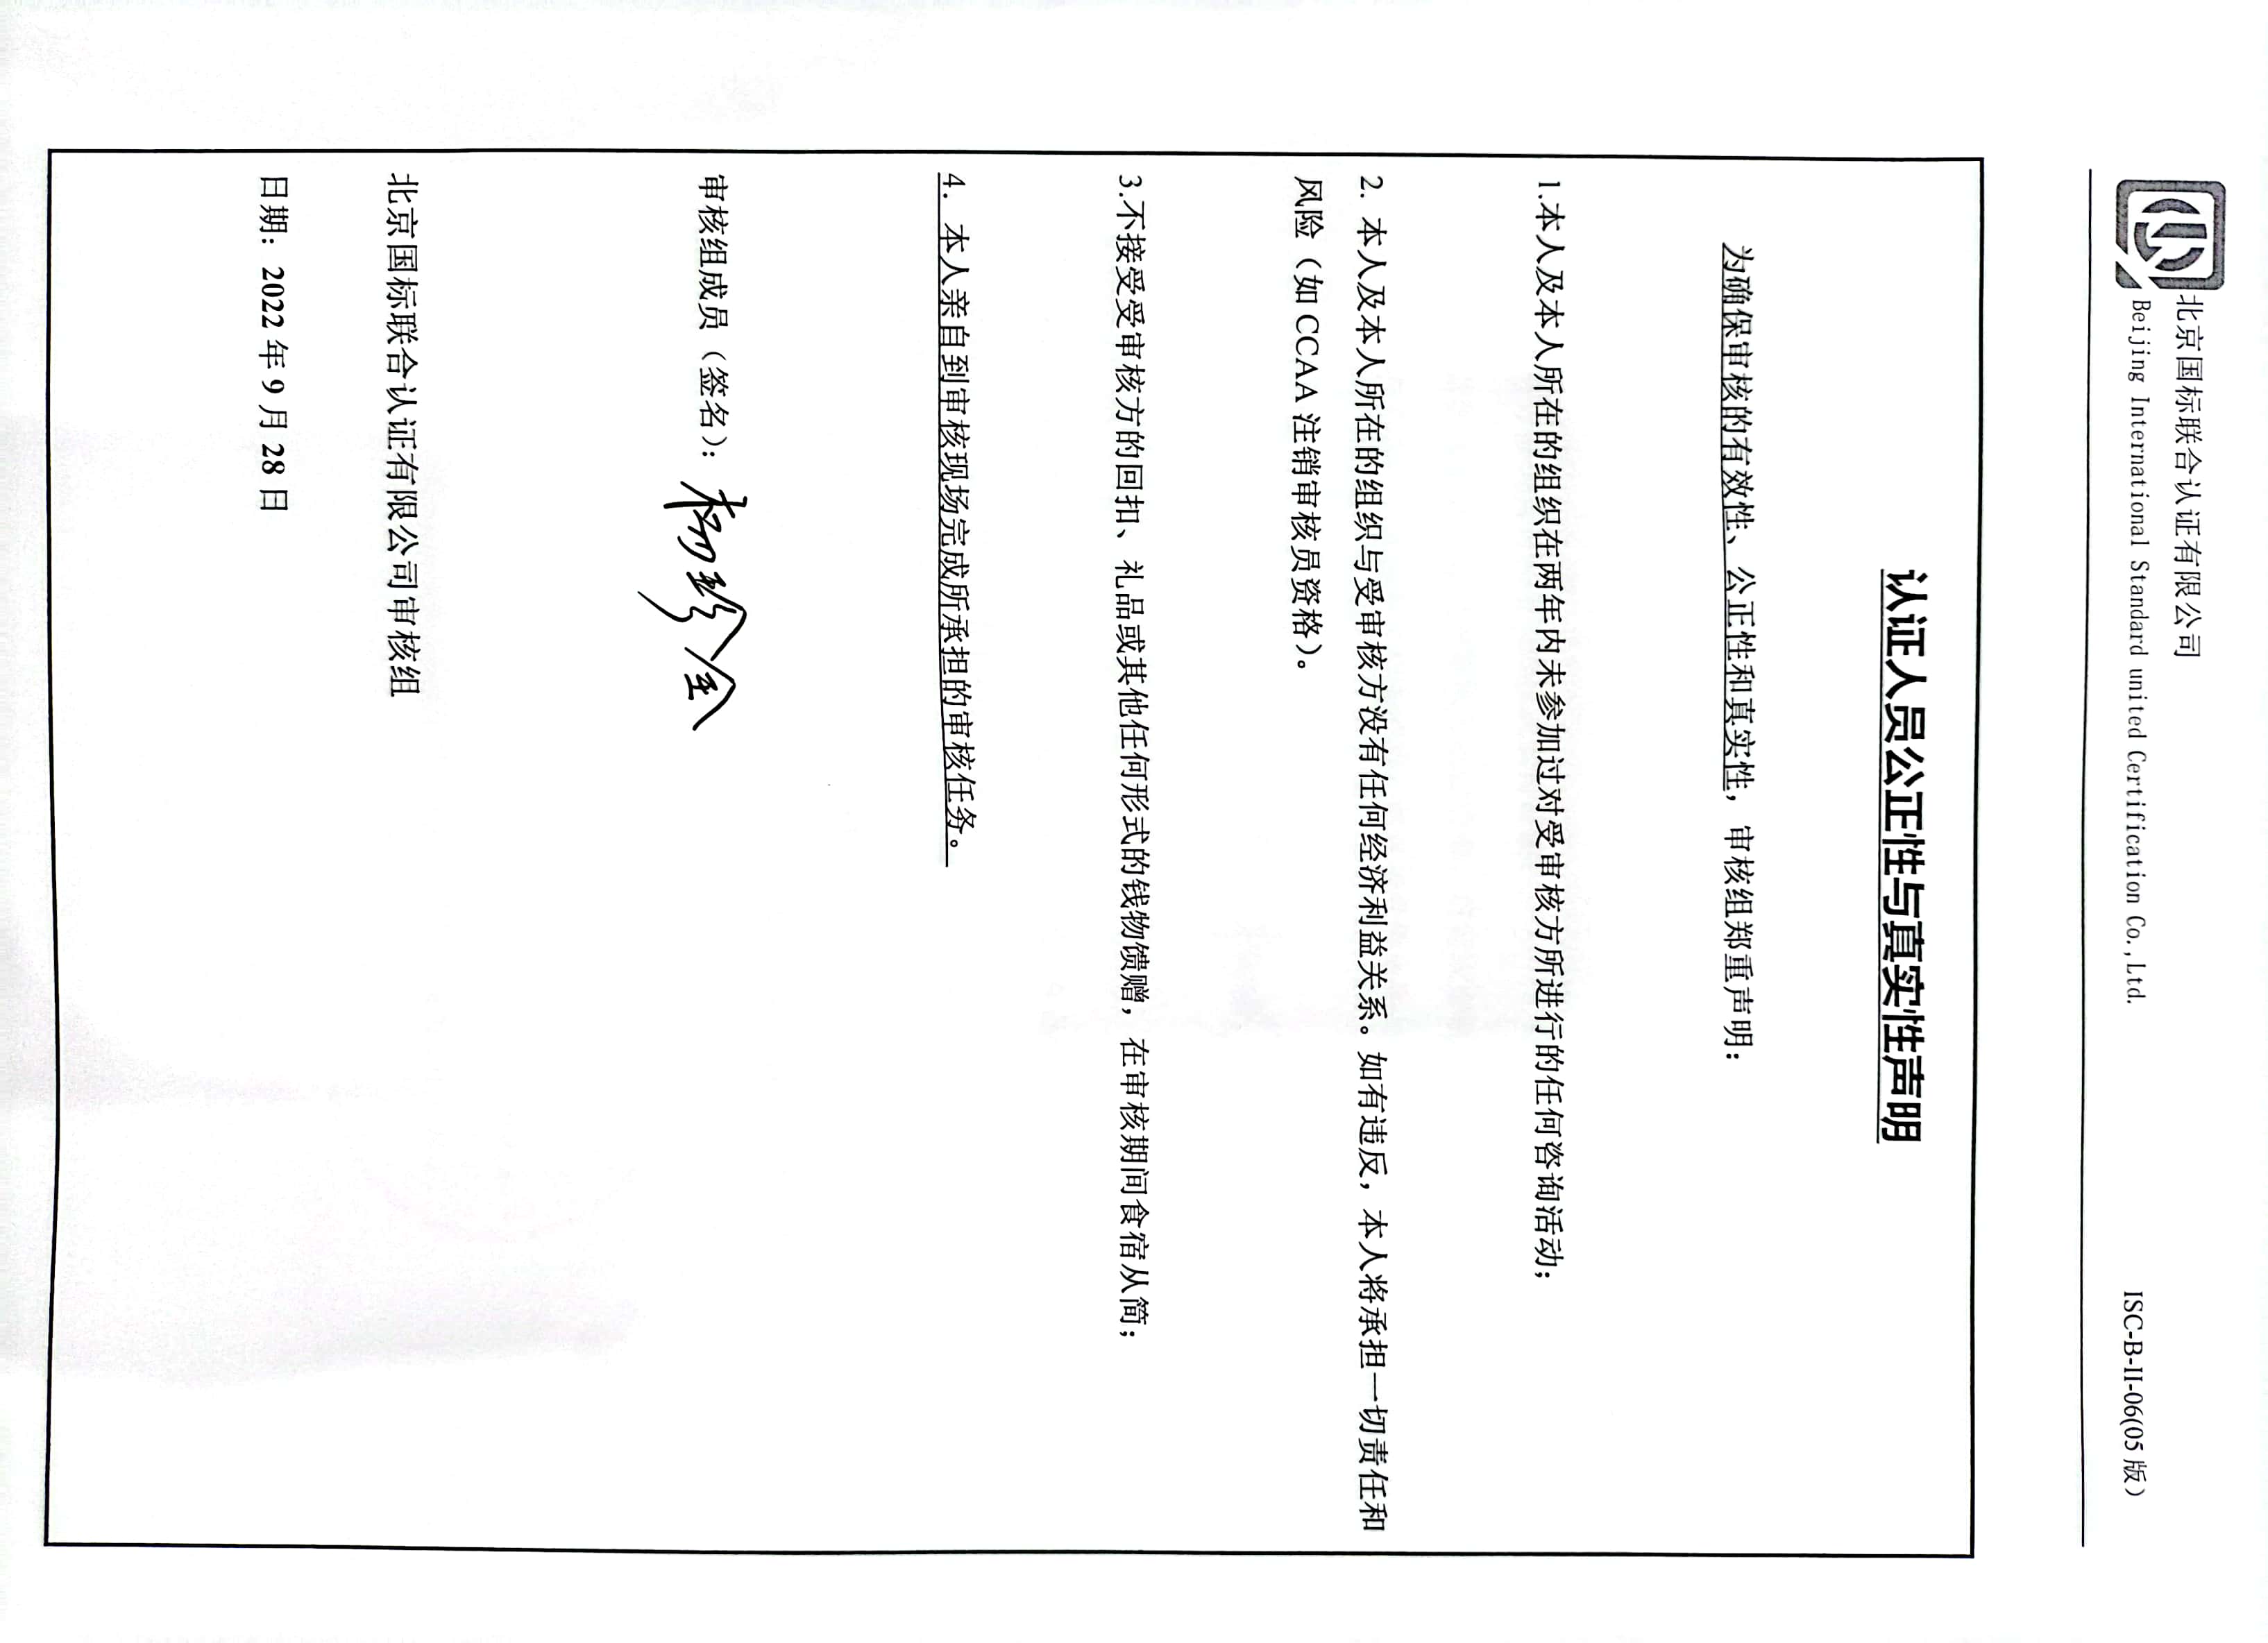 北京国标联合认证有限公司
Beijing International Standard united Certification Co.,Ltd.
ISC-B-II-06(05 版)
认证人员公正性与真实性声明
为确保审核的有效性、公正性和真实性，审核组郑重声明：
1.本人及本人所在的组织在两年内未参加过对受审核方所进行的任何咨询活动；
2. 本人及本人所在的组织与受审核方没有任何经济利益关系。如有违反，本人将承担一切责任和
风险（如 CCAA 注销审核员资格）。
3.不接受受审核方的回扣、礼品或其他任何形式的钱物馈赠，在审核期间食宿从简；
4. 本人亲自到审核现场完成所承担的审核任务。
审核组成员（签名）：杨珍全
北京国标联合认证有限公司审核组
日期：2022 年 9 月 28 日